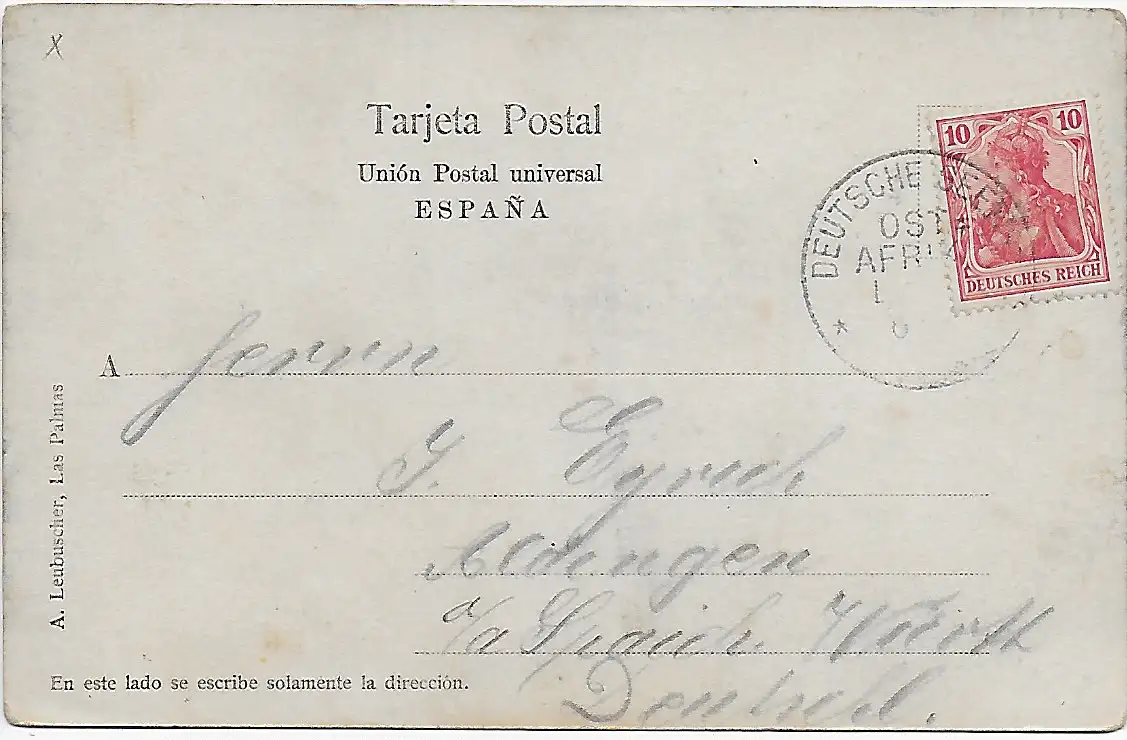 X
Tarjeta Postal
Unión Postal universal
ESPAÑA
10 10
DEUTSCHES REICH
DEUTSCHE SEE
OST
AFRI
L
A Herrn
J. Eyrich
Aldingen
a/a Spaich. Württ
A. Leubuscher, Las Palmas
En este lado se escribe solamente la dirección.